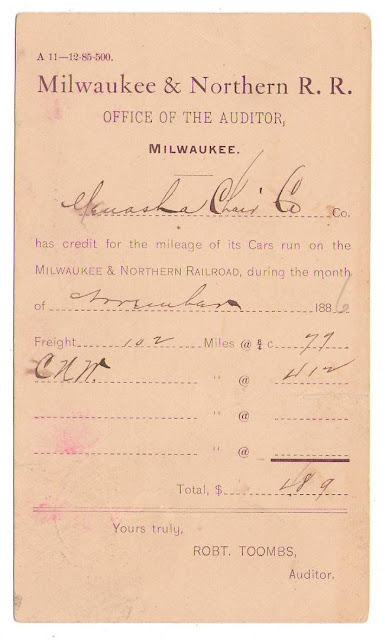 A 11—12-85-500.
Milwaukee & Northern R. R.
OFFICE OF THE AUDITOR,
MILWAUKEE.
Menasha Chair Co Co.
has credit for the mileage of its Cars run on the
MILWAUKEE & NORTHERN RAILROAD, during the month
of November 1886
Freight 102 Miles @ ¾ c 77
C N W. " @ 412
" @
" @
Total, $ 489
Yours truly,
ROBT. TOOMBS,
Auditor.